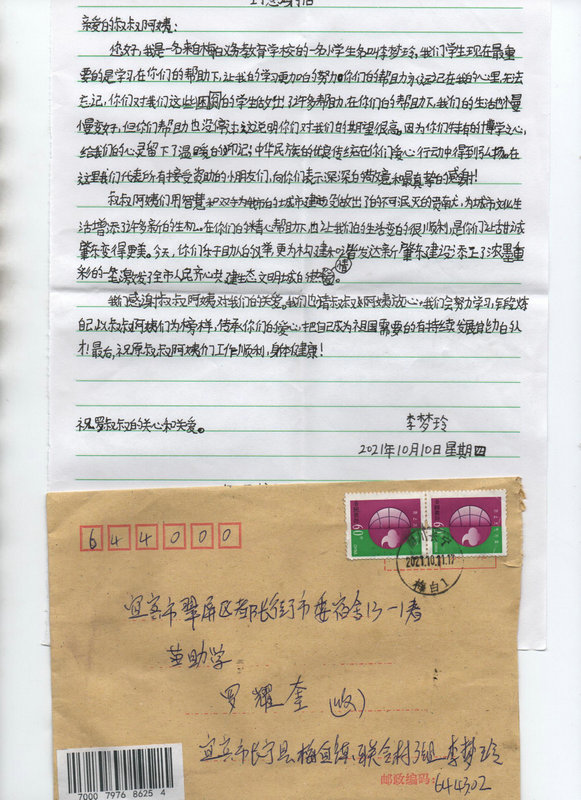 亲爱的叔叔阿姨:
您好,我是一名来自梅白义务教育学校的一名小学生名叫李梦玲,我们学生现在最重
要的是学习在你们的帮助下,让我的学习更加的努力。你们的帮助永远记在我的心里无法
忘记,你们对我们这些困难的学生做出了许多帮助,在你们的帮助下,我们的生活也慢
慢变好,但你们帮助也没停止这说明你们对我们的期望很高。因为你们特有的博学之心,
给我们的心灵留下了温暖的印记;中华民族的优良传统在你们爱心行动中得到弘扬。在
这里我们代表所有接受资助的小朋友们,向你们表示深深的敬意和最真挚的感谢!
叔叔阿姨们用智慧和双手为我市的城市建设做出了的不可泯灭的贡献,为城市文化生
活增添了许多新的生机。在你们的精心帮助下,也让我们的生活变的很顺利,是你们让
肇东变得更美。今天,你们乐于助人的义举,更为构建和谐发达新肇东建设添上了浓墨重
彩的一笔激发了全市人民齐心共建生态文明城的热情。
我们感谢叔叔阿姨对我们的关爱。我们也请叔叔阿姨放心,我们会努力学习,锻炼
自己,以叔叔阿姨们为榜样,传承你们的爱心,把自己成为祖国需要的有持续发展能力的人
才!最后,祝原叔叔阿姨们工作顺利,身体健康!
祝罗叔叔的关心和关爱。
李梦玲
2021年10月10日星期四
644000
2021.10.11.17
梅白1
宜宾市翠屏区都长街市委宿舍13-1号
苗助学
罗耀奎(收)
宜宾市长宁县梅白镇联合村3组 李梦玲
邮政编码:
644302
7000 7976 8625 4